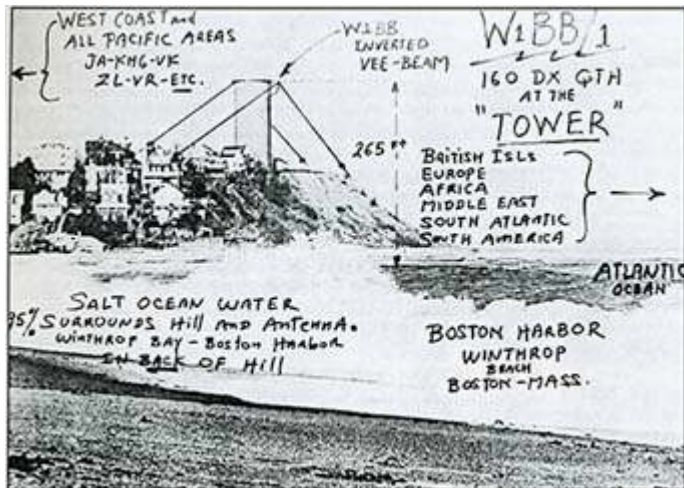 WEST COAST and
ALL PACIFIC AREAS
JA-KH6-VK
ZL-VR-ETC.
W1BB
INVERTED
VEE-BEAM
W1BB/1
160 DX QTH
AT THE
"TOWER"
265 FT
BRITISH ISLS
EUROPE
AFRICA
MIDDLE EAST
SOUTH ATLANTIC
SOUTH AMERICA
ATLANTIC
OCEAN
SALT OCEAN WATER
95% SURROUNDS HILL AND ANTENNA.
WINTHROP BAY - BOSTON HARBOR
IN BACK OF HILL
BOSTON HARBOR
WINTHROP
BEACH
BOSTON-MASS.